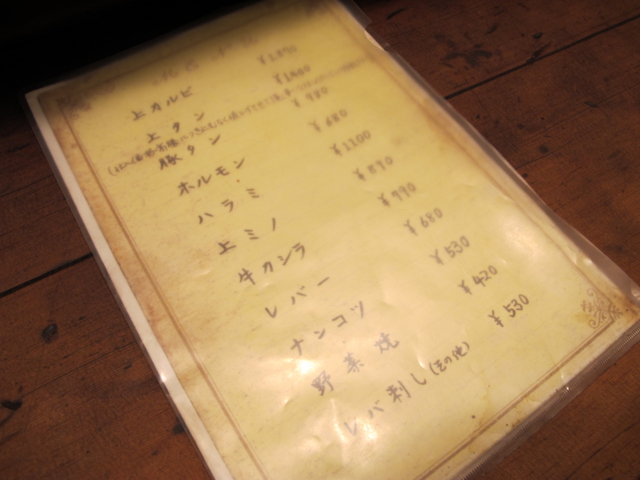 上カルビ
上タン ¥1460
豚タン
ホルモン ¥680
ハラミ ¥1100
上ミノ ¥890
牛カシラ ¥990
レバー ¥680
ナンコツ ¥530
野菜焼 ¥420
レバ刺し(その他) ¥530